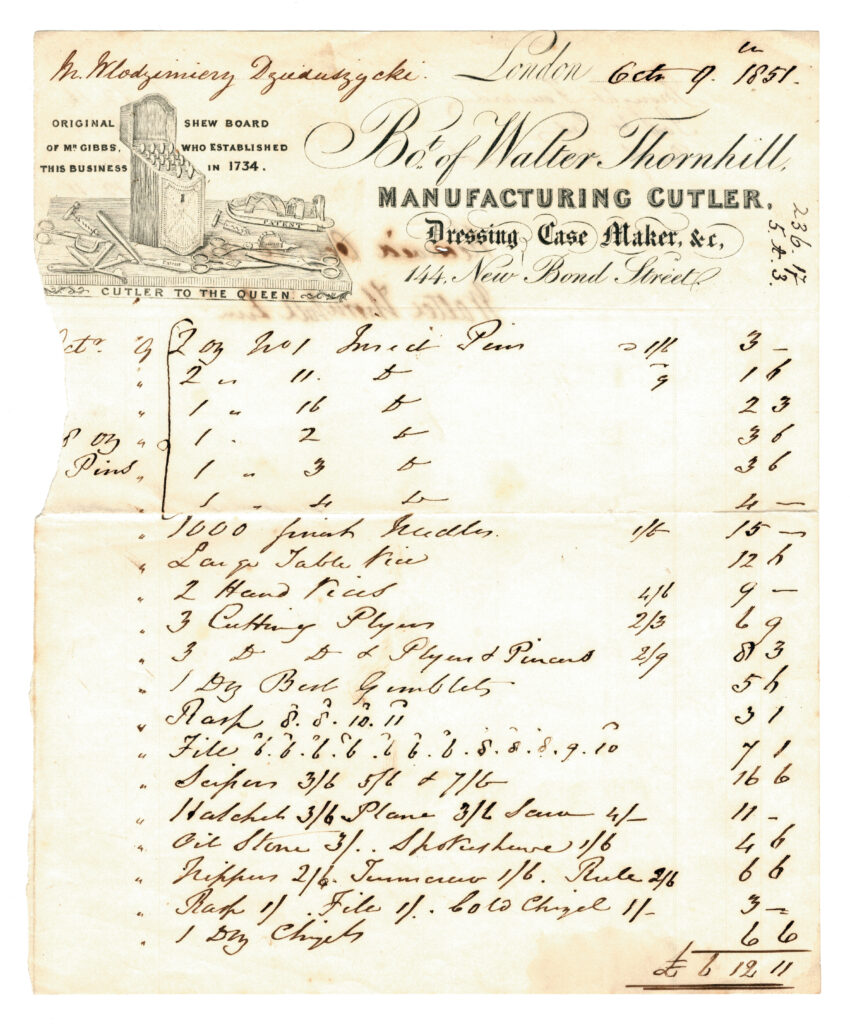 Mr. Wlodzimierz Dzieduszycki. London Octr 9. th 1851.
ORIGINAL SHEW BOARD
OF MR GIBBS, WHO ESTABLISHED
THIS BUSINESS IN 1734.
Bot. of Walter Thornhill,
MANUFACTURING CUTLER,
Dressing Case Maker, &c,
144, New Bond Street
PATENT
CUTLER TO THE QUEEN.
236.17
5.4.3.
Octr 9 2 oz No 1 Insect Pins 1/6 3 –
" 2 " 11. D 9 1 6
" 1 " 16 D 2 3
8 oz " 1 " 2 D 3 6
Pins " 1 " 3 D 3 6
1 " 4 D 4 –
" 1000 Needles. 1/6 15 –
" Large Table Vice 12 6
" 2 Hand Vices 4/6 9 –
" 3 Cutting Plyers 2/3 6 9
" 3 D D & Plyers & Pincers 2/9 8 3
" 1 Dz Best Gimblets 5 6
" Rasp 8. 8. 10. 11 3 1
" File 6. 6. 6. 6. 6. 6. 6. 8. 8. 8. 9. 10 7 1
" 3/6 5/6 & 7/6 16 6
" Hatchet 3/6 Plane 3/6 Saw 4/– 11 –
" Oil Stone 3/. . Spokeshave 1/6 4 6
" Nippers 2/6. Turnscrew 1/6. Rule 2/6 6 6
" Rasp 1/. . File 1/. . Cold Chizel 1/– 3 –
" 1 Dz Chizels 6 6
£ 6 12 11